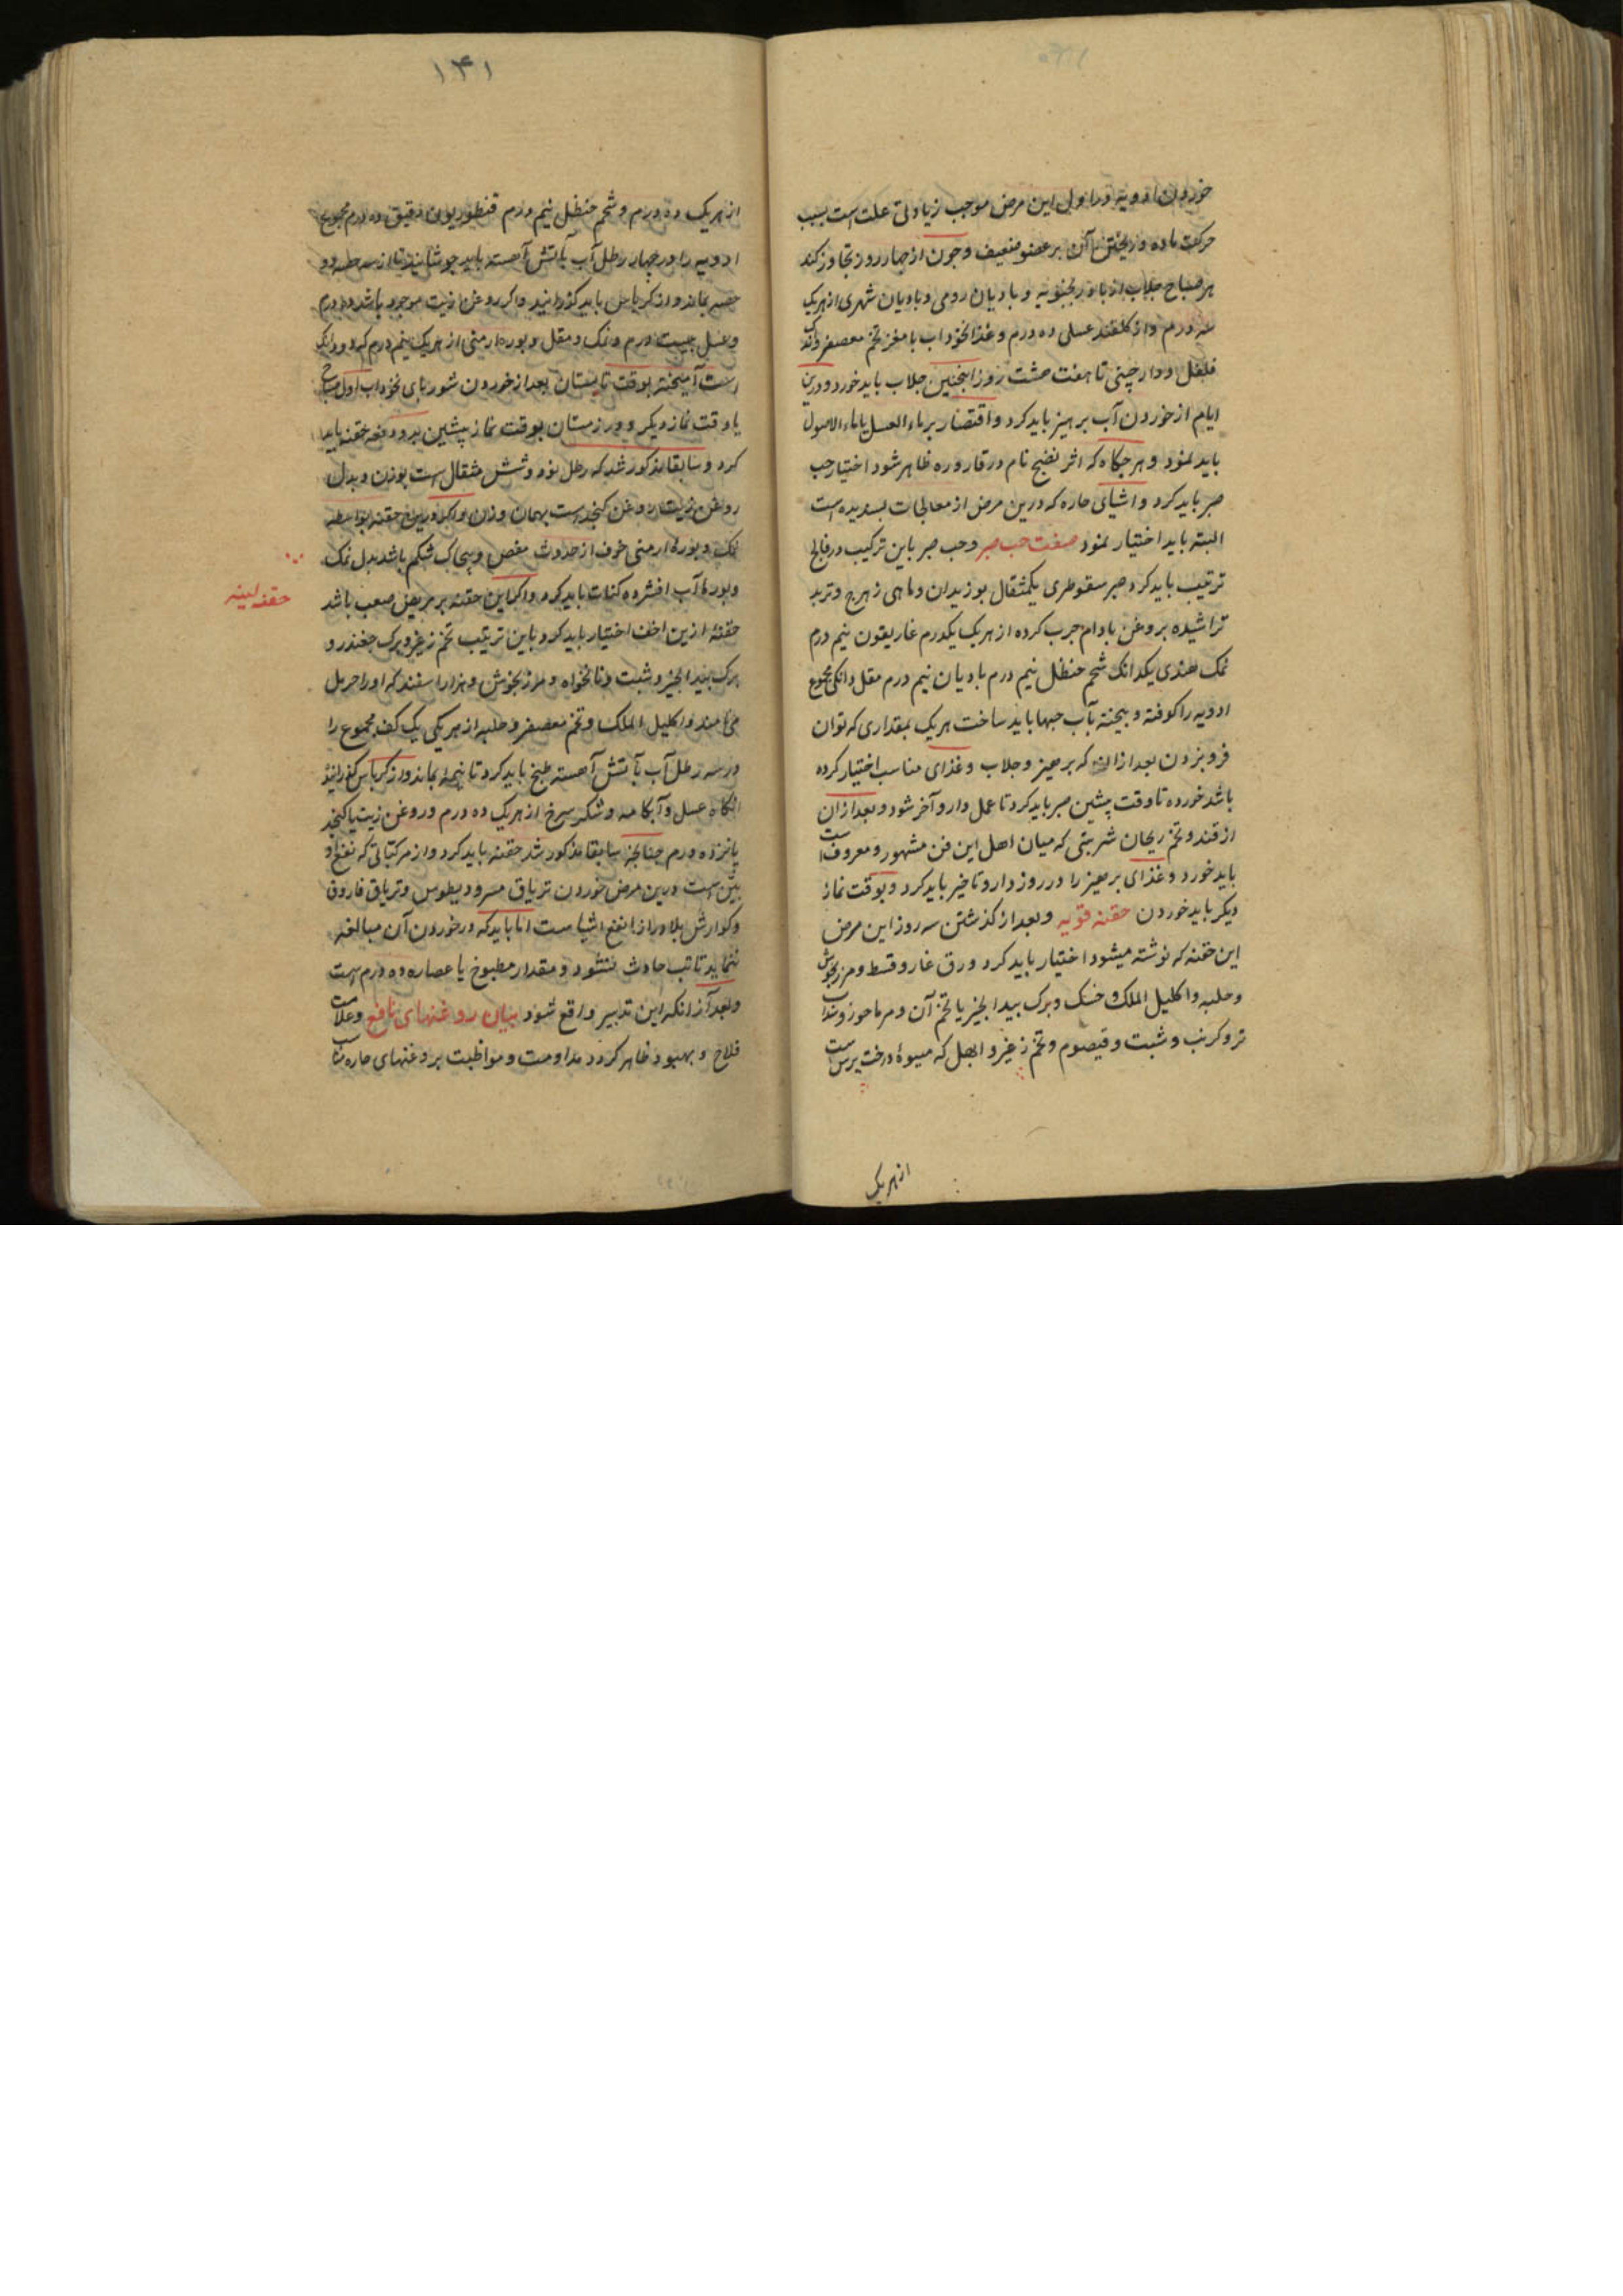 خوردن ادویه در اول این مرض موجب زیادتی علت است بسبب
حرکت ماده و ریختن آن بر عضو ضعیف و چون از چهار روز تجاوز کند
هر صباح جلاب از بادرنجبویه و بادیان رومی و بادیان شهری از هریک
سه درم و از کلقند عسلی ده درم و غذا نخوداب با مغز تخم معصفر و اندک
فلفل و دارچینی تا هفت هشت روز اینچنین جلاب باید خورد و درین
ایام از خوردن آب پرهیز باید کرد و اقتصار بر ماء العسل یا ماء الاصول
باید نمود و هرجکاه که اثر نضج تام در قاروره ظاهر شود اختیار حب
صبر باید کرد و اشیای حاره که درین مرض از معالجات پسندیده است
البته باید اختیار نمود صفت حب صبر و حب صبر باین ترکیب در فالج
ترتیب باید کرد صبر سقوطری یکمثقال بوزیدان و ماهی زهرج و تربد
تراشیده بروغن بادام چرب کرده از هریک یکدرم غاریقون نیم درم
نمک هندی یکدانک شحم حنظل نیم درم بادیان نیم درم مقل دانکی مجموع
ادویه را کوفته و بیخته بآب حبها باید ساخت هریک بمقداری که توان
فرو بردن بعد از آن که پرهیز و جلاب و غذای مناسب اختیار کرده
باشد خورده تا وقت پیشین صبر باید کرد تا عمل دارو آخر شود و بعد از آن
از قند و تخم ریحان شربتی که میان اهل این فن مشهور و معروف است
باید خورد و غذای پرهیز را در روز دارو تاخیر باید کرد و بوقت نماز
دیکر باید خوردن حقنه قویه و بعد از کذشتن سه روز این مرض
این حقنه که نوشته میشود اختیار باید کرد ورق غار و قسط و مرزنجوش
و حلبه و اکلیل الملک و خسک و برک بیدانجیر یا تخم آن و مرماحوز و سداب
تر و کرنب و شبت و قیصوم و تخم زغیر و ابهل که میوهٔ درخت پرس است
از هریک
۱۴۱
از هریک ده درم و شحم حنظل نیم درم قنطوریون دقیق ده درم مجموع
ادویه را در چهار رطل آب بآتش آهسته باید جوشانید تا از سه حصه دو
حصه بماند و از کرباس باید کذرانید و اکر روغن زیت موجود باشد ده درم
و عسل بیست درم و نمک و مقل و بوره ارمنی از هریک نیم درم که دو دانک
است آمیخته بوقت تابستان بعد از خوردن شوربای نخوداب اول صباح
یا وقت نماز دیکر و در زمستان بوقت نماز پیشین بدو دفعه حقنه باید
کرد و سابقا مذکور شد که رطل نود و شش مثقال است بوزن و بدل
روغن زیت روغن کنجد است بهمان وزن و اکر درین حقنه بواسطه
نمک و بورهٔ ارمنی خوف از حدوث مغص و پیچاک شکم باشد بدل نمک
و بوره آب افشرده کنات باید کرد و اکر این حقنه بر مریض صعب باشد
حقنهٔ ازین اخف اختیار باید کرد باین ترتیب تخم زغیر و برک چغندر و
برک بیدانجیر و شبت و نانخواه و مرزنجوش و هزار اسفند که او را حرمل
می نامند و اکلیل الملک و تخم معصفر و حلبه از هریکی یک کف مجموع را
در سه رطل آب بآتش آهسته طبخ باید کرد تا نیمه بماند و از کرباس کذرانید
انکاه عسل و آبکامه و شکر سرخ از هریک ده درم و روغن زیت یا کنجد
پانزده درم چنانچه سابقا مذکور شد حقنه باید کرد و از مرکباتی که نفع او
بین است درین مرض خوردن تریاق مسرودیطوس و تریاق فاروق
و کوارش بلادر از انفع اشیاست اما باید که در خوردن آن مبالغه
ننماید تا تب حادث نشود و مقدار مطبوخ یا عصاره ده درم است
و بعد از آنکه این تدبیر واقع شود بیان روغنهای نافع و علامت
فلاح و بهبود ظاهر کردد مداومت و مواظبت بروغنهای حاره مناسب
حقنه لینه